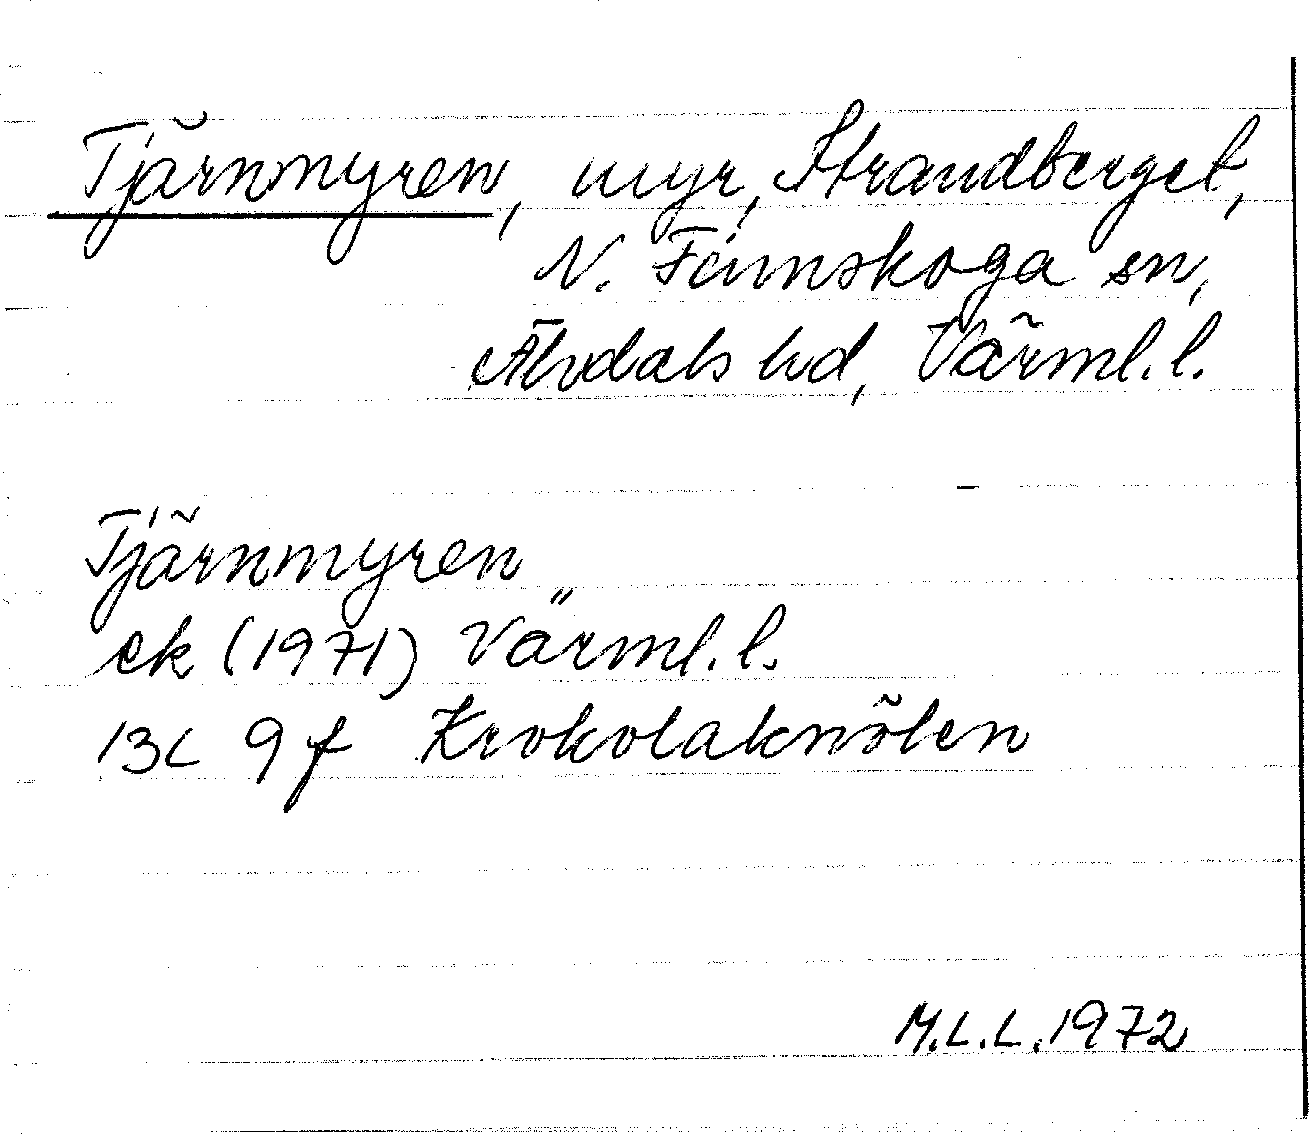 Tjärnmyren, myr, Strandberget,
N. Finnskoga sn,
Älvdals hd, Värml. l.
Tjärnmyren
ek (1971) Värml. l.
13C 9f Krokolaknölen
M.L.L. 1972